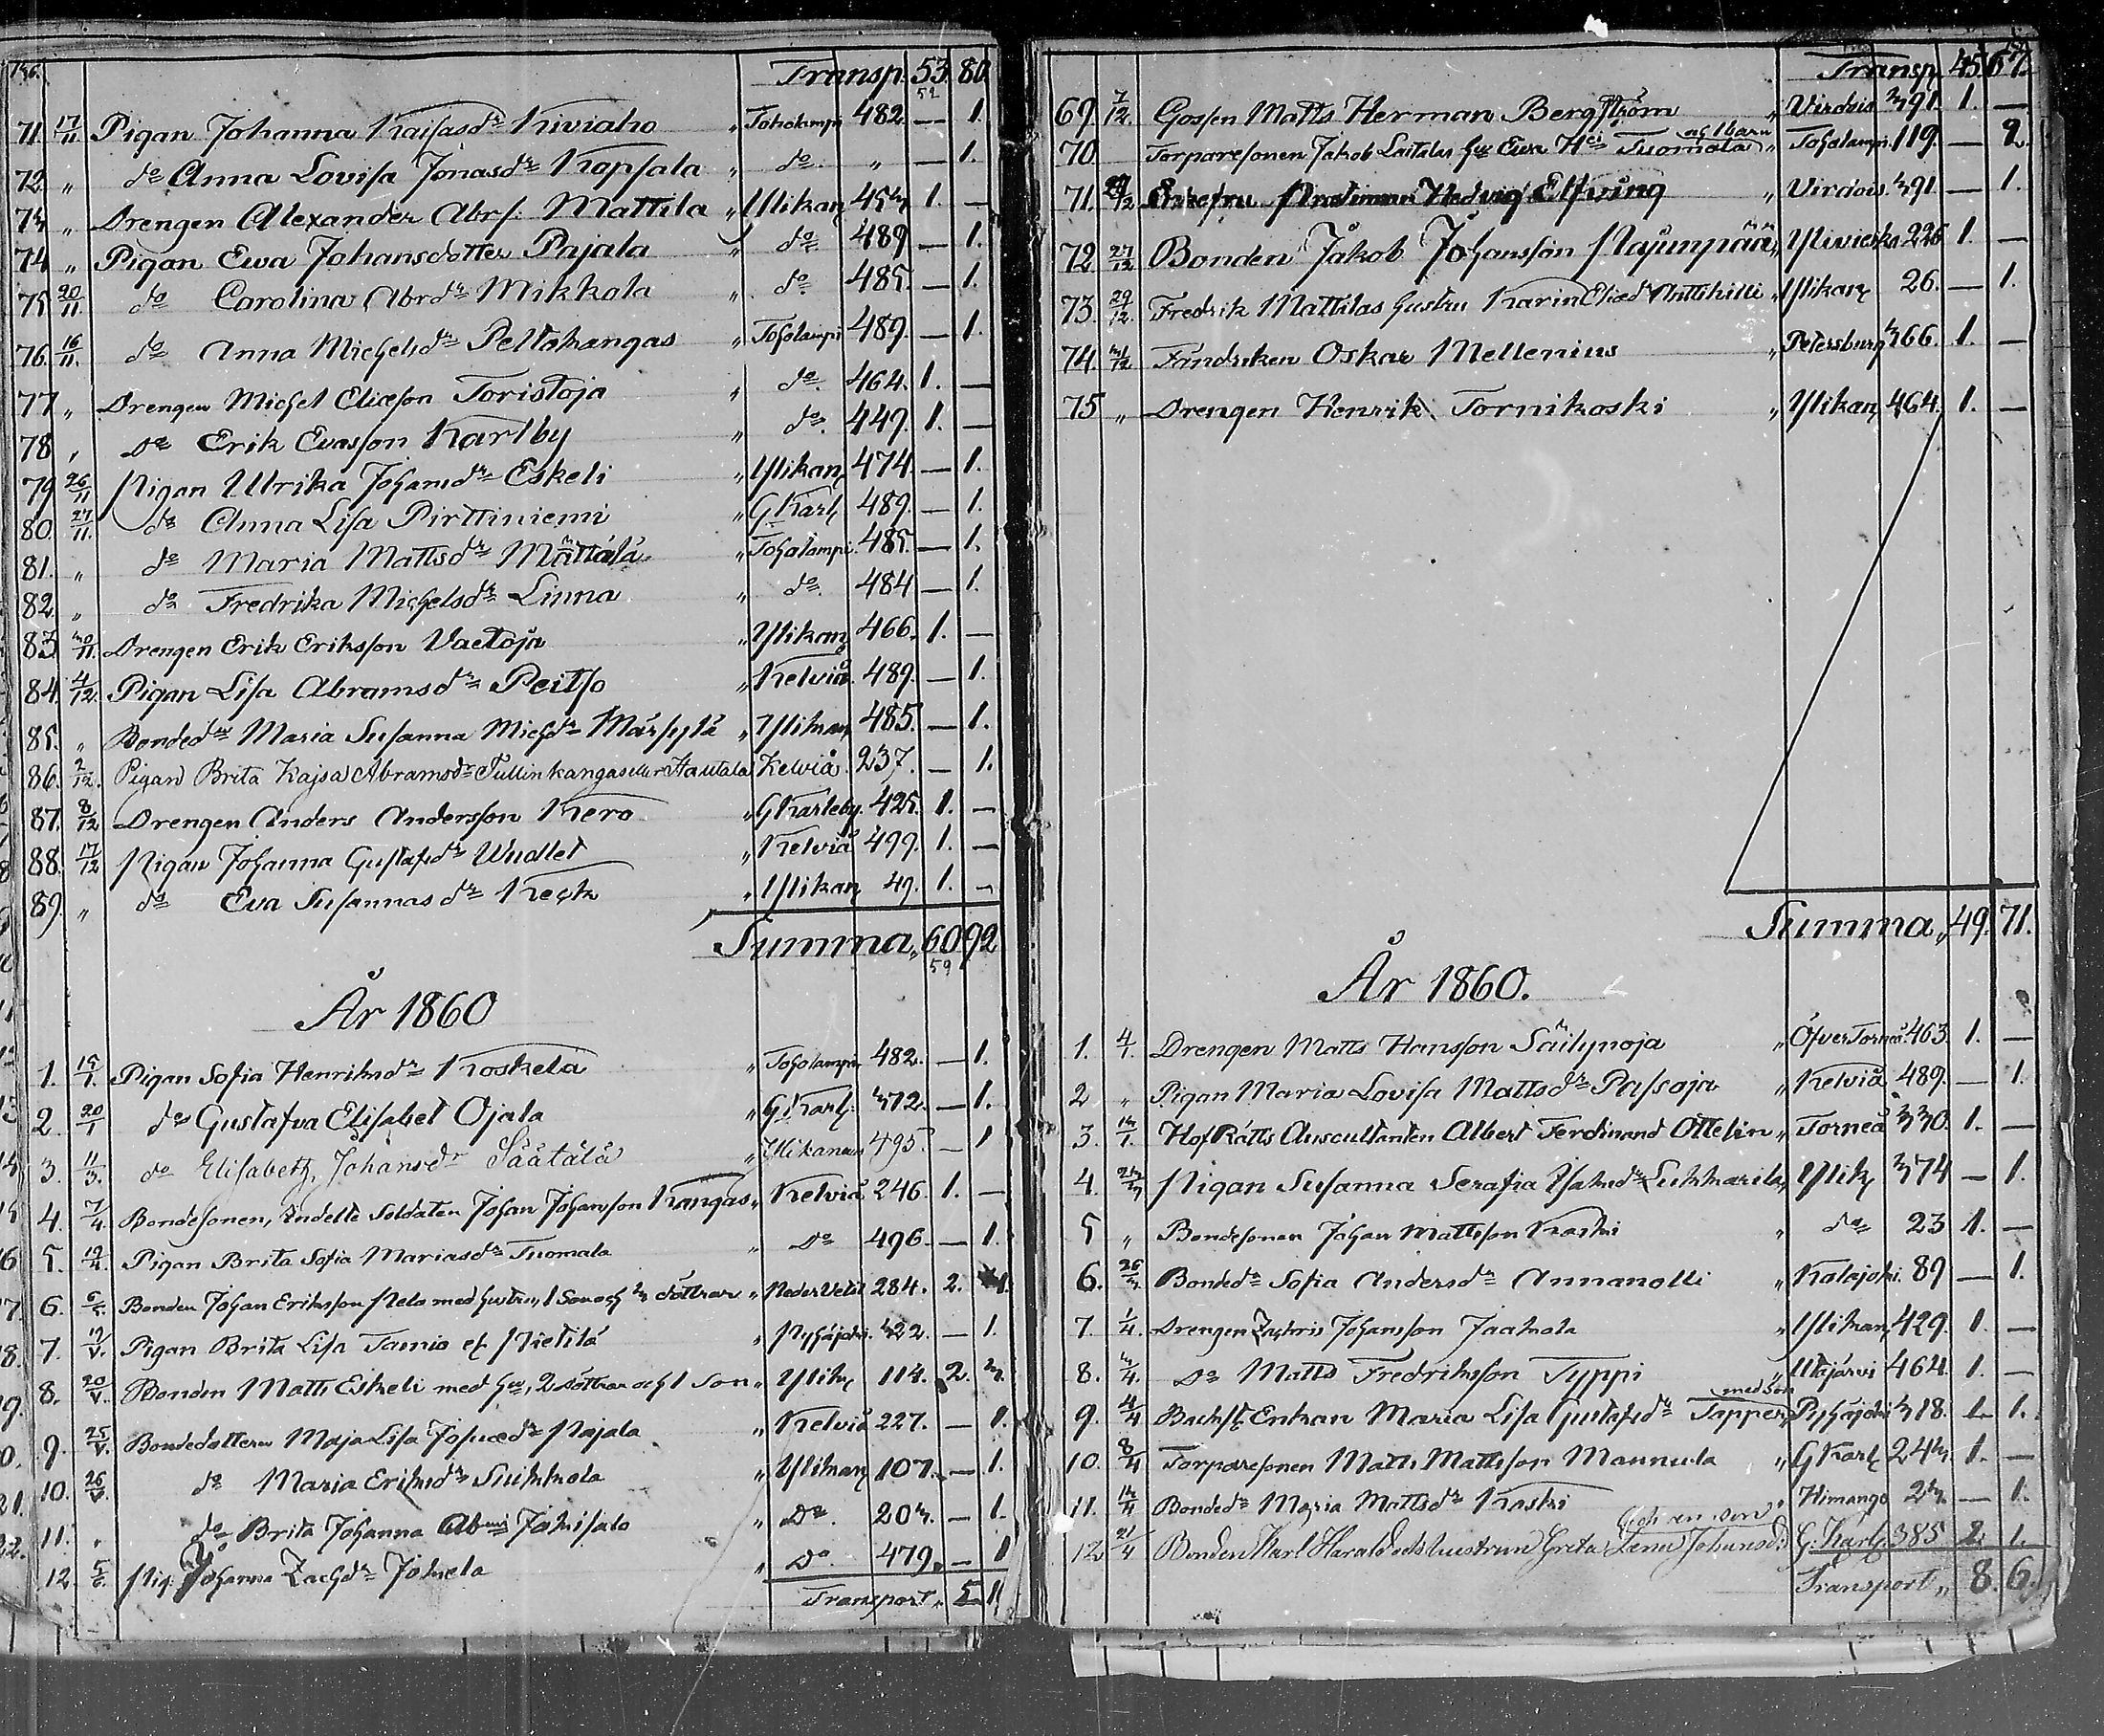 Transp. 53. 80.
52
71. 17/11 Pigan Johanna Kaisasdr Kiviaho " Toholampi 482. — 1.
72. " do Anna Lovisa Jonasdr Kopsala " do " — 1.
73. " Drengen Alexander Abrs. Mattila " Ylikan 453 1. —
74. " Pigan Ewa Johansdotter Pajala " do 489 — 1.
75. 20/11 do Carolina Abrdr Mikkola " do 485. — 1.
76. 16/11 do Anna Michelsdr Peltokangas " Toholampi 489. — 1.
77. " Drengen Michel Eliæson Toristoja " do 464. 1. —
78. " Do Erik Evasson Karlby " do 449. 1. —
79. 26/11 Pigan Ulrika Johansdr Eskeli " Ylikan 474. — 1.
80. 27/11 do Anna Lisa Pirttiniemi " G Karl 489. — 1.
81. " do Maria Mattsdr Määttälä " Toholampi 485. — 1.
82. " do Fredrika Michelsdr Linna " do 484 — 1.
83. 30/11 Drengen Erik Eriksson Vaetoja " Ylikan 466. 1. —
84. 4/12 Pigan Lisa Abramsdr Peitso " Kelviå 489. — 1.
85. " Bondedr Maria Susanna Michdr Märsylä " Ylikan 485. — 1.
86. 2/12 Pigan Brita Kajsa Abramsdr Tullinkangas eller Hautala Kelviå 237. — 1.
87. 8/12 Drengen Anders Andersson Kero " G Karleby 425. 1. —
88. 17/12 Pigan Johanna Gustafsdr Wudlet " Kelviå 499. 1. —
89. " do Eva Susannasdr Keck " Ylikan 49. 1. —
Summa, 60 92
59
År 1860
1. 15/1 Pigan Sofia Henriksdr Koskela " Toholampi 482. — 1.
2. 20/1 do Gustafva Elisabet Ojala " G Karl 372. — 1.
3. 11/3 do Elisabeth Johansdr Säätälä " Ylikannus 495. — 1
4. 7/4 Bondesonen, Indelte Soldaten Johan Johansson Kangas " Kelviå 246. 1. —
5. 19/4 Pigan Brita Sofia Mariasdr Tuomala " Do 496. — 1.
6. 6/5 Bonden Johan Eriksson Pelo med hustru, 1 Son och 3 döttrar " Neder Vetil 284. 2.
7. 19/V. Pigan Brita Lisa Tamio el Pietilä " Pyhäjoki 422. — 1.
8. 20/V. Bonden Matts Eskeli med hu, 2 döttrar och 1 son " Ylik 114. 2. 3.
9. 25/V. Bondedottern Maja Lisa Josuædr Pajala " Kelviå 227. — 1.
10. 26/V. do Maria Eriksdr Suikkola " Ylikan 107. — 1.
11. " do Brita Johanna Jokisalo " Do. 203. — 1.
12. 5/6 Pig. Johanna Zachdr Jokela " Do 479. — 1
Transport. 5. 11
Transp. 45. 67.
69. 7/12 Gossen Matts Herman Bergström " Virdois 391. 1. —
och 1 barn
70. Torparesonen Jakob Laitalas hu Ewa Tuomala " Toholampi 119. — 2.
71. Enkefru Hedvig Elfving " Virdois 391. — 1.
72. 27/12 Bonden Jakob Johansson Pajunpää " Ylivieska 226 1. —
73. 29/12 Fredrik Mattilas hustru Karin Eliædr Anttikilli " Ylikan 26. — 1.
74. 31/12 Fändriken Oskar Mellenius " Petersburg 366. 1. —
75. " Drengen Henrik Tornikoski " Ylikan 464. 1. —
Summa, 49. 71.
År 1860.
1. 4/1. Drengen Matts Hansson Säilynoja " Öfver Torneå 463. 1. —
2. " Pigan Maria Lovisa Mattsdr Passoja " Kelviå 489. — 1.
3. 13/1. Hof Rätts Auscultanten Albert Ferdinand Ottelin " Torneå 330. 1. —
4. Pigan Susanna Serafia Isaksdr Suhkarila " Ylik 374 — 1.
5. " Bondesonen Johan Mattsson Koski " do 23 1. —
6. 26/3 Bondedr Sofia Andersdr Annanolli " Kalajoki. 89 — 1.
7. 1/4. Drengen Zachris Johansson Jaakola " Ylikan 429. 1. —
8. 3/4. Do Matts Fredriksson Typpi " Utajärvi 464. 1. —
med son
9. 4/4 Backst. Enkan Maria Lisa Gustafsdr Tapper " Pyhäjoki 318. 1. 1.
10. 8/4 Torparesonen Matts Mattsson Mannula " G Karl 243. 1. —
11. 13/4 Bondedr Maria Mattsdr Koski Himango 23. — 1.
och en son
12. 21/4 Bonden Karl Harald och hustrun Greta Lena Johansdr G. Karl. 385 2. 1.
Transport " 8. 6.